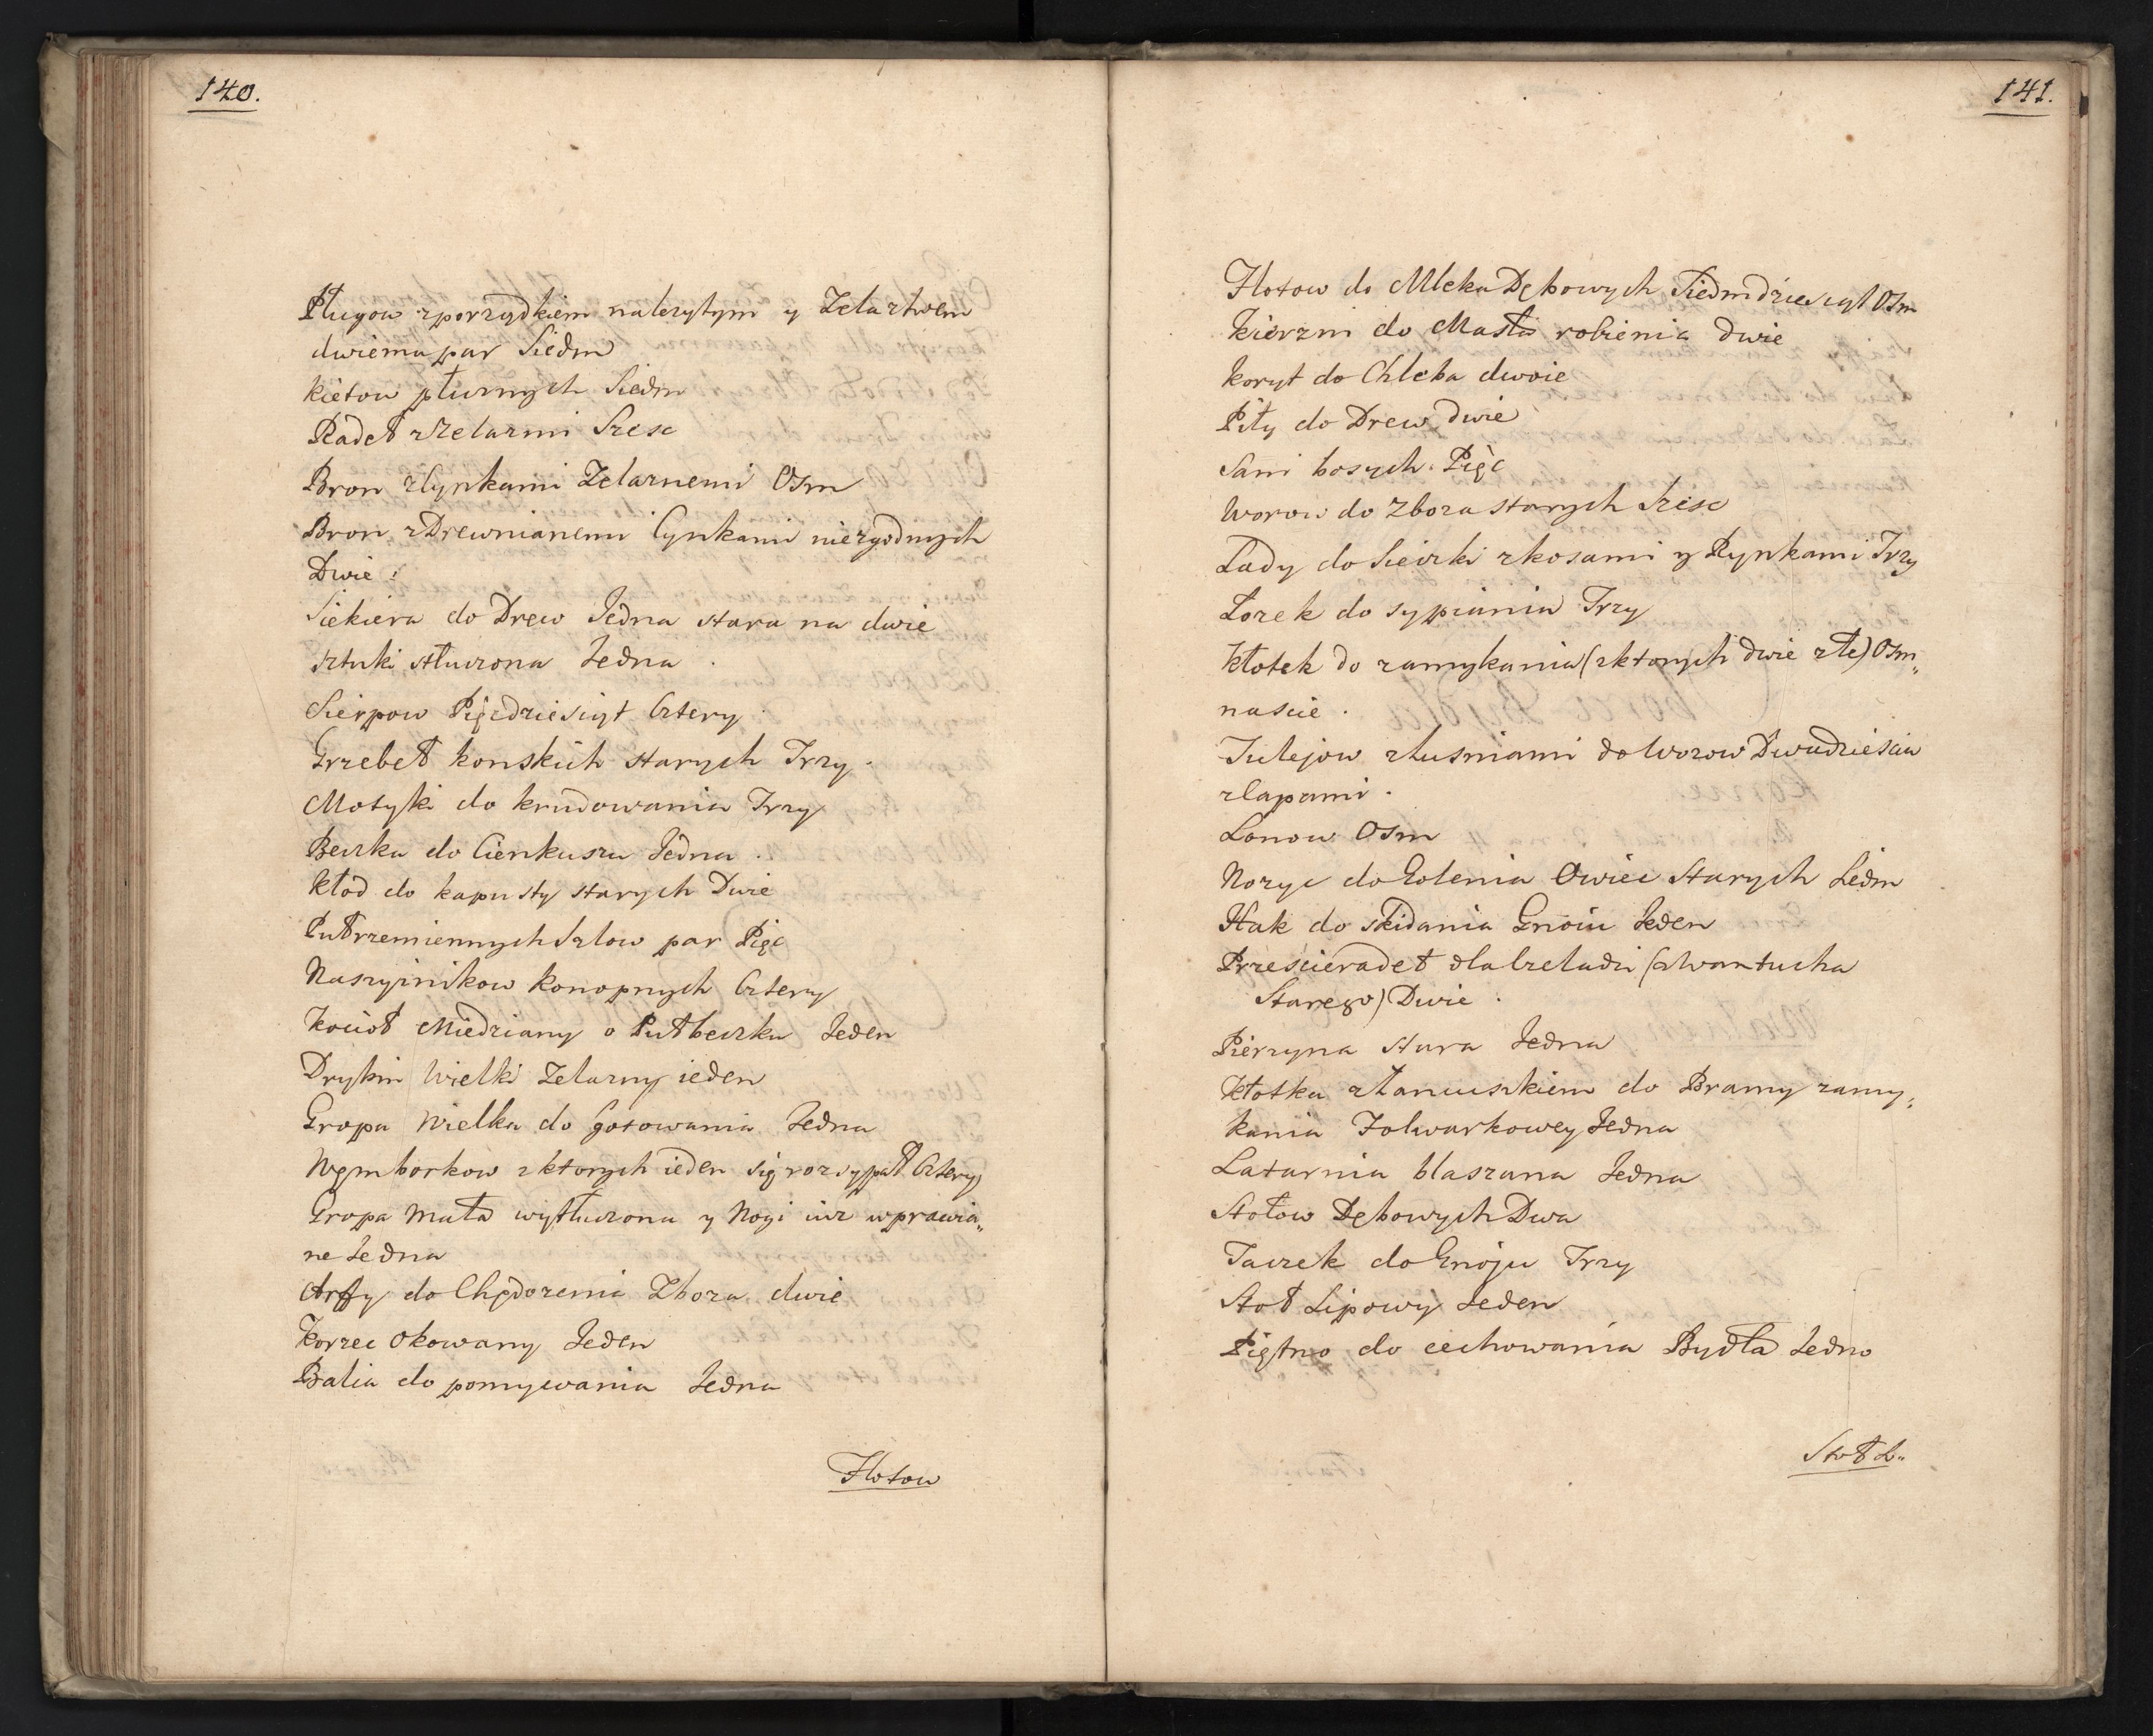 140.
Pługow zporządkiem należytym y Zelaztwem
dwiema par Siedm
kiełow płurnych Siedm
Radeł zżelazmi Szesc
Bron zCynkami Zelaznemi Osm
Bron zDrewnianemi Cynkami niezgodnych
Dwie.
Siekiera do Drew Jedna stara na dwie
sztuki stłuczona Jedna.
Sierpow Pięcdziesiąt Cztery
Grzebeł konskich starych Trzy.
Motyki do krudowania Trzy
Beczka do Cienkuszu Jedna.
kłod do kapusty starych Dwie
Pułrzemiennych Szlow par Pięc
Naszyinikow konopnych Cztery
Kocioł Miedziany o Pułbeczku Jeden
Drybin Wielki Zelazny ieden
Gropa Wielka do Gotowania Jedna
Węmborkow zktorych ieden się rozsypał Cztery
Gropa Mała wytłuczona y Nogi iuz wprawia„
ne Jedna
Arffy do Chędozenia Zboza dwie
Korzec Okowany Jeden
Balia do pomywania Jedna
Flotow
141.
Flotow do Mleka Dębowych Siedmdziesiąt Osm
Kierzni do Masła robienia dwie
koryt do Chleba dwoie
Piły do Drew dwie
Sani bosych Pięc
Worow do Zboza starych Szesc
Lady do Sieczki zkosami y Rynkami Trzy
Łozek do sypiania Trzy
kłotek do zamykania (zktorych dwie złe) Osm„
nascie.
Tulejow złusniami do Wozow Dwudziescia
zlapami.
Lonow Osm
Nozyc do Golenia Owiec Starych Siedm
Hak do skidania Gnoiu Jeden
Przescieradeł dla Czeladzi (zwantucha
Starego) Dwie.
Pierzyna stara Jedna
kłotka złancuszkiem do Bramy zamy„
kania Folwarkowey Jedna
Latarnia blaszana Jedna
Stołow Dębowych Dwa
Taczek do Gnoju Trzy
Stoł Lipowy Jeden
Piętno do cechowania Bydła Jedno
Stoł L„